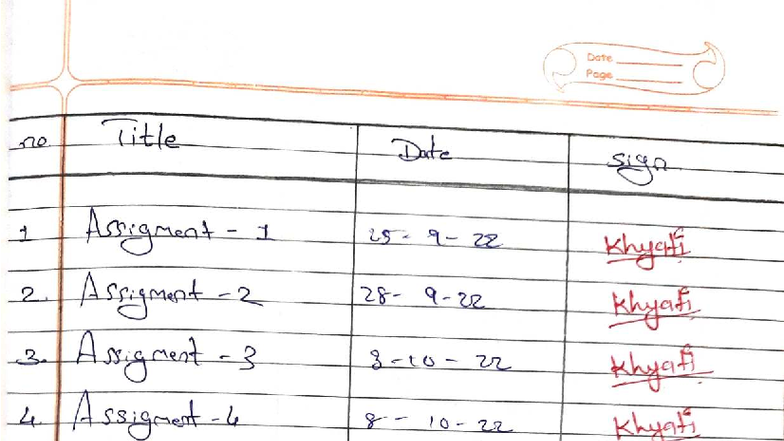 Date
Page
no. Title Date sign
1 Assigment - 1 25 - 9 - 22 Khyati
2. Assigment - 2 28 - 9 - 22 Khyati
3. Assigment - 3 3 - 10 - 22 Khyati
4. Assigment - 4 8 - 10 - 22 Khyati